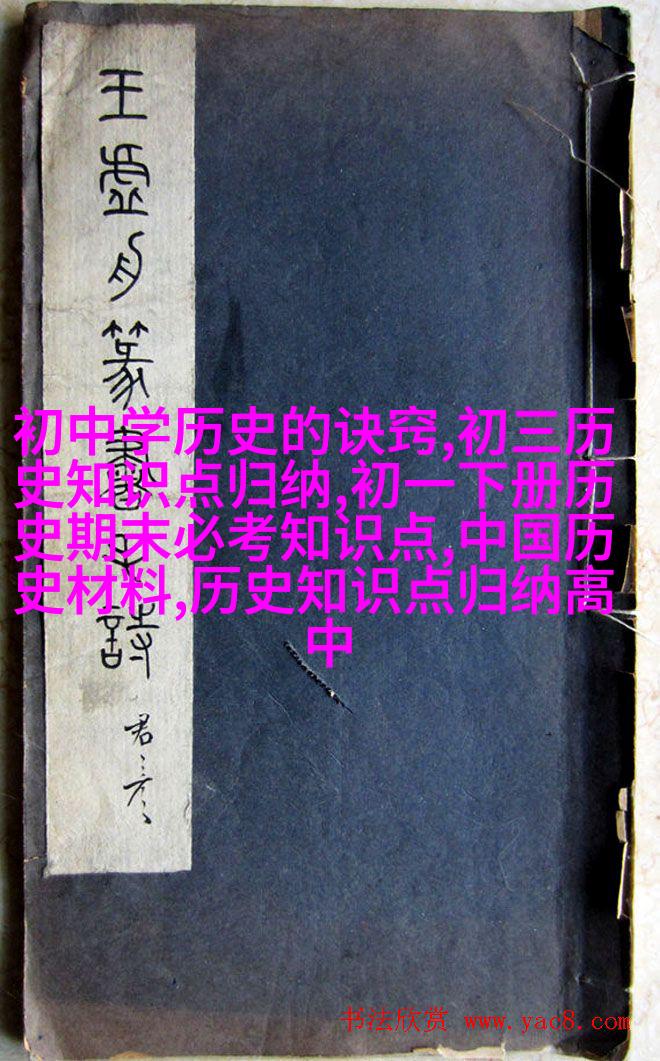 王虚舟篆書千詩
君彦
初中学历史的诀窍,初三历
史知识点归纳,初一下册历
史期末必考知识点,中国历
史材料,历史知识点归纳高
中
书法欣赏 www.yac8.com